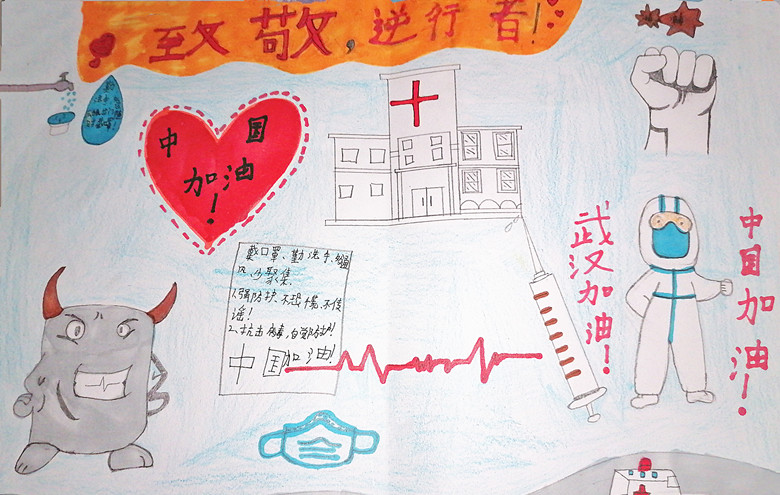 致敬,逆行者!
中国
加油!
戴口罩、勤洗手、
风、少聚集.
1.强防护、不恐慌、不传
谣!
2.抗击病毒,
中国加油!
武汉加油!
中国加油!